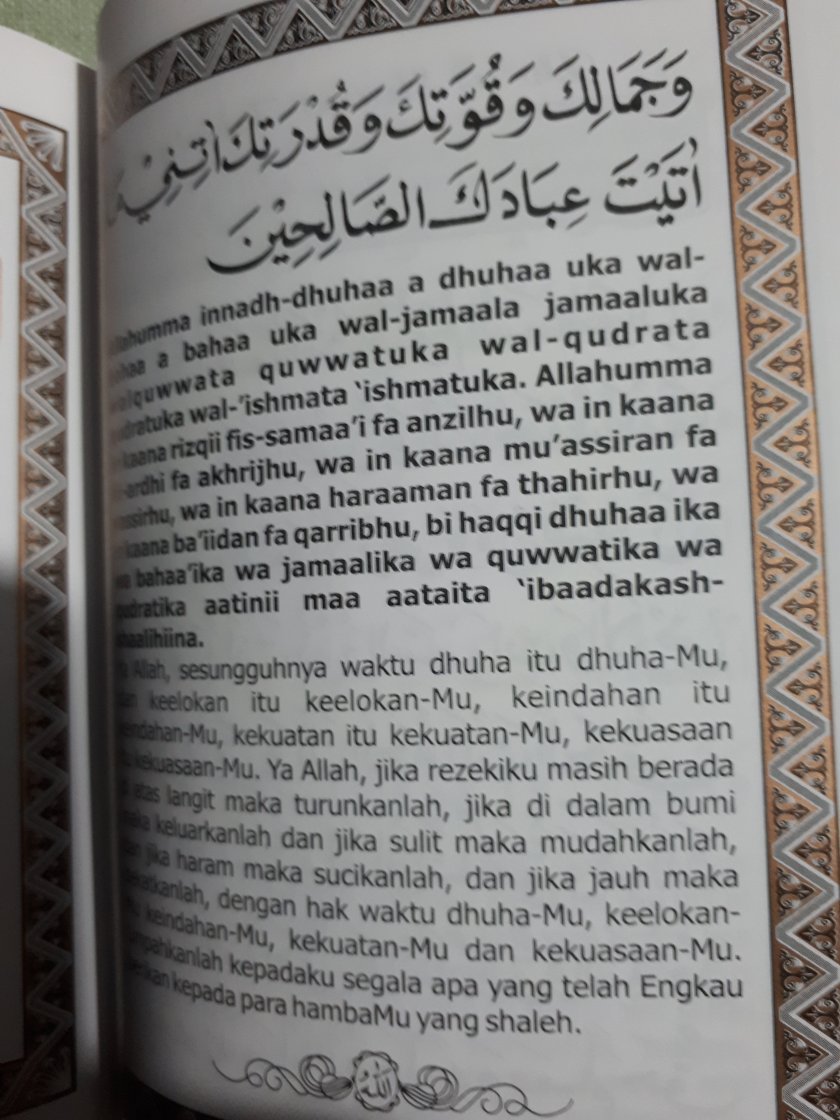 وَجَمَالِكَ وَقُوَّتِكَ وَقُدْرَتِكَ اٰتِنِيْ
اٰتَيْتَ عِبَادَكَ الصَّالِحِيْنَ
innadh-dhuhaa a dhuhaa uka wal-
a bahaa uka wal-jamaala jamaaluka
quwwatuka wal-qudrata
wal-'ishmata 'ishmatuka. Allahumma
kaana rizqii fis-samaa'i fa anzilhu, wa in kaana
fa akhrijhu, wa in kaana mu'assiran fa
wa in kaana haraaman fa thahirhu, wa
kaana ba'iidan fa qarribhu, bi haqqi dhuhaa ika
wa bahaa'ika wa jamaalika wa quwwatika wa
aatinii maa aataita 'ibaadakash-
Allah, sesungguhnya waktu dhuha itu dhuha-Mu,
keelokan itu keelokan-Mu, keindahan itu
kekuatan itu kekuatan-Mu, kekuasaan
kekuasaan-Mu. Ya Allah, jika rezekiku masih berada
atas langit maka turunkanlah, jika di dalam bumi
keluarkanlah dan jika sulit maka mudahkanlah,
jika haram maka sucikanlah, dan jika jauh maka
dengan hak waktu dhuha-Mu, keelokan-
keindahan-Mu, kekuatan-Mu dan kekuasaan-Mu.
kepadaku segala apa yang telah Engkau
kepada para hambaMu yang shaleh.
الله